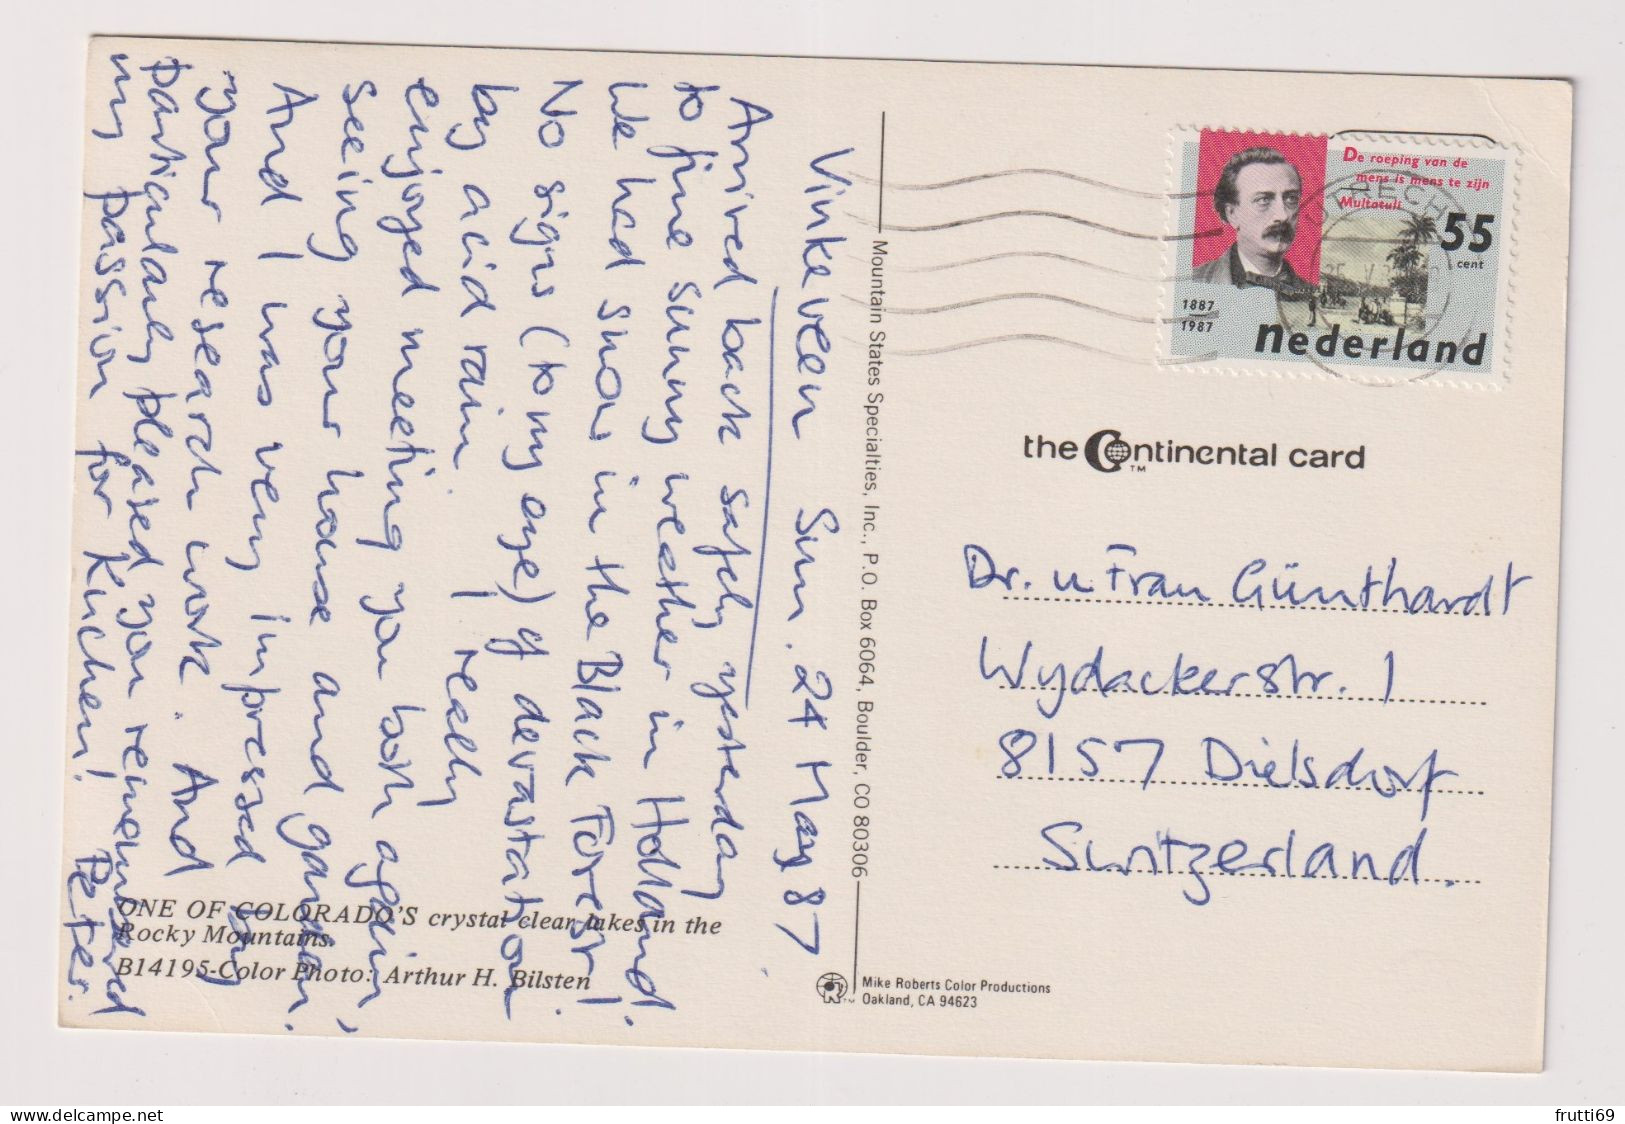 Vinkeveen Sun. 24 May 87
Arrived back safely yesterday
to fine sunny weather in Holland.
We had snow in the Black Forest!
No signs (to my eye) of devastation
by acid rain. I really
enjoyed meeting you both again,
seeing your house and garden.
And I was very impressed by
your research work. And
particularly pleased you remembered
my passion for Kuchen! Peter.
ONE OF COLORADO'S crystal clear lakes in the
Rocky Mountains.
B14195-Color Photo: Arthur H. Bilsten
Mountain States Specialties, Inc., P.O. Box 6064, Boulder, CO 80306
Mike Roberts Color Productions
Oakland, CA 94623
De roeping van de
mens is mens te zijn
Multatuli
55
cent
1887
1987
nederland
the Continental card
TM
Dr. u Frau Günthardt
Wydackerstr. 1
8157 Dielsdorf
Switzerland.
frutti69